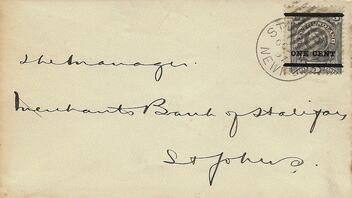 ONE CENT
The Manager.
Merchants Bank of Halifax
St Johns.